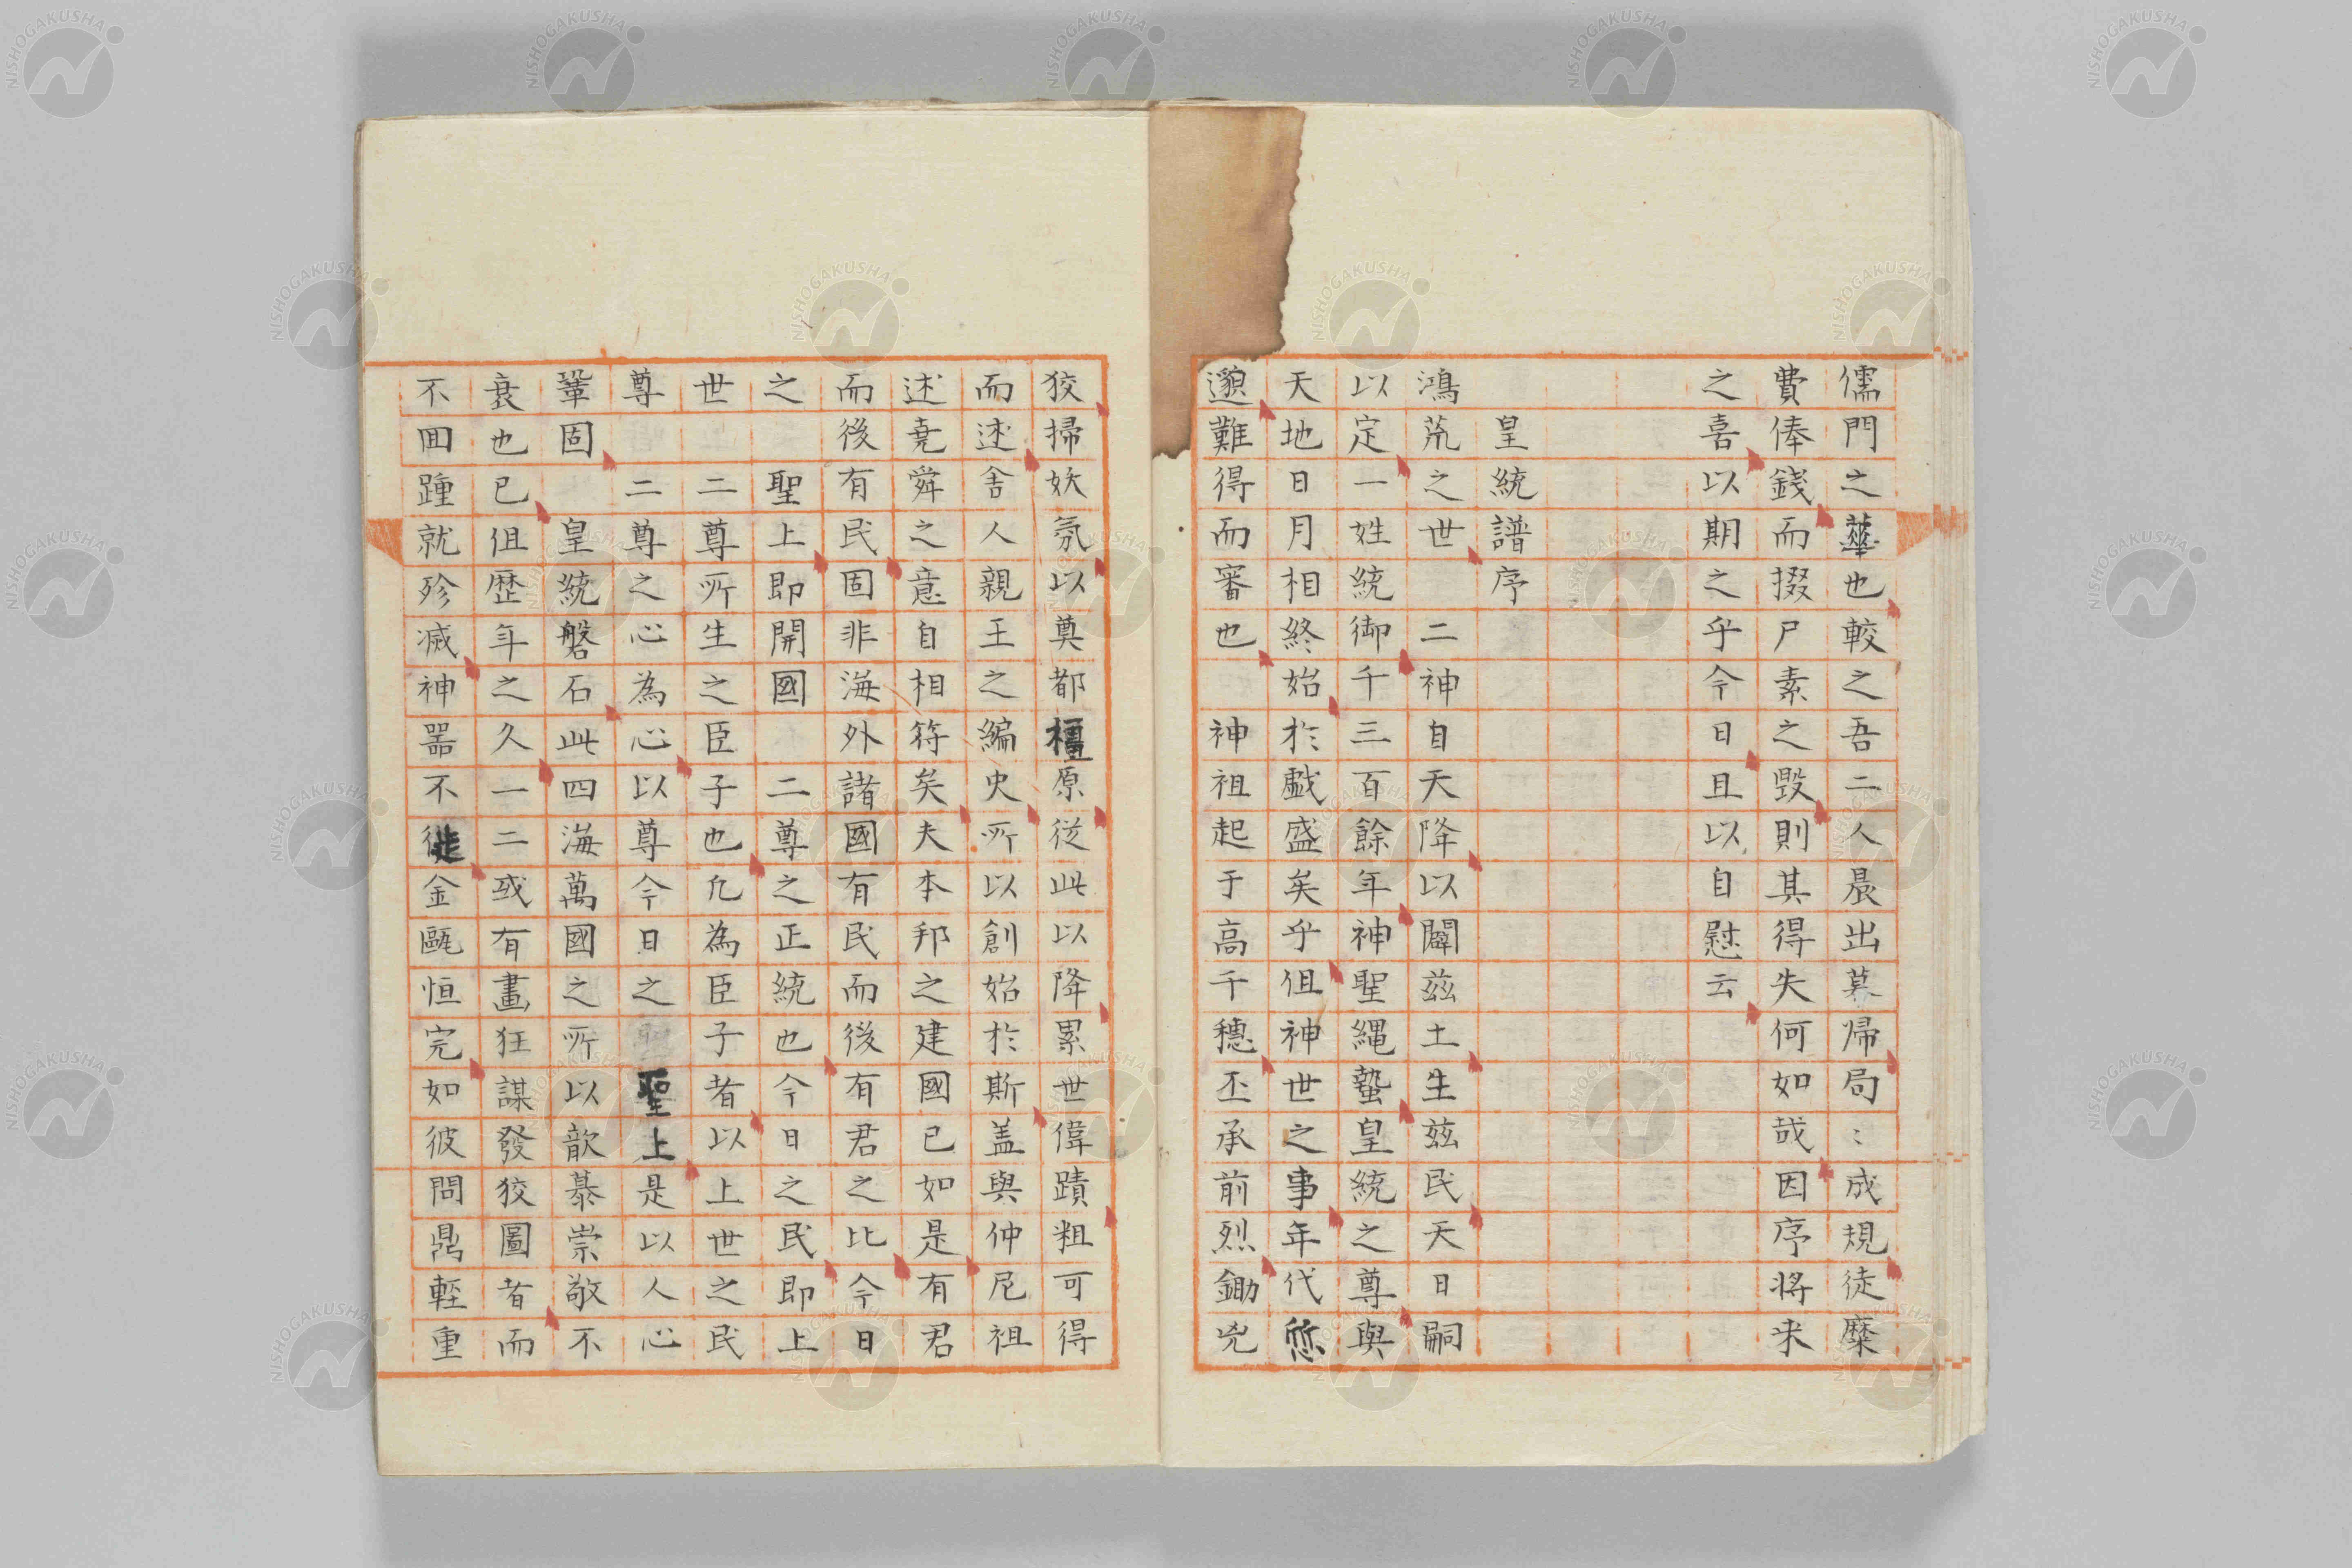 儒門之蕐也較之吾二人晨出暮帰局〻成規徒糜
費俸錢而掇尸素之毀則其得失何如哉因序将来
之喜以期之乎今日且以自慰云
皇統譜序
鴻荒之世 二神自天降以闢茲土生茲民天日嗣
以定一姓統御千三百餘年神聖縄蟄皇統之尊與
天地日月相終始於戯盛矣乎但神世之事年代悠
邈難得而審也 神祖起于高千穗丕承前烈鋤兇
狡掃妖氛以奠都橿原従此以降累世偉蹟粗可得
而述舎人親王之編史所以創始於斯盖與仲尼祖
述堯舜之意自相符矣夫本邦之建國已如是有君
而後有民固非海外諸國有民而後有君之比今日
之 聖上即開國 二尊之正統也今日之民即上
世二尊所生之臣子也凢為臣子者以上世之民
尊 二尊之心為心以尊今日之 聖上是以人心
鞏固 皇統磐石此四海萬國之所以歆慕崇敬不
衰也已但歴年之久一二或有畫狂謀發狡圖者而
不囬踵就殄滅神噐不徙金甌恒完如彼問鼎輕重